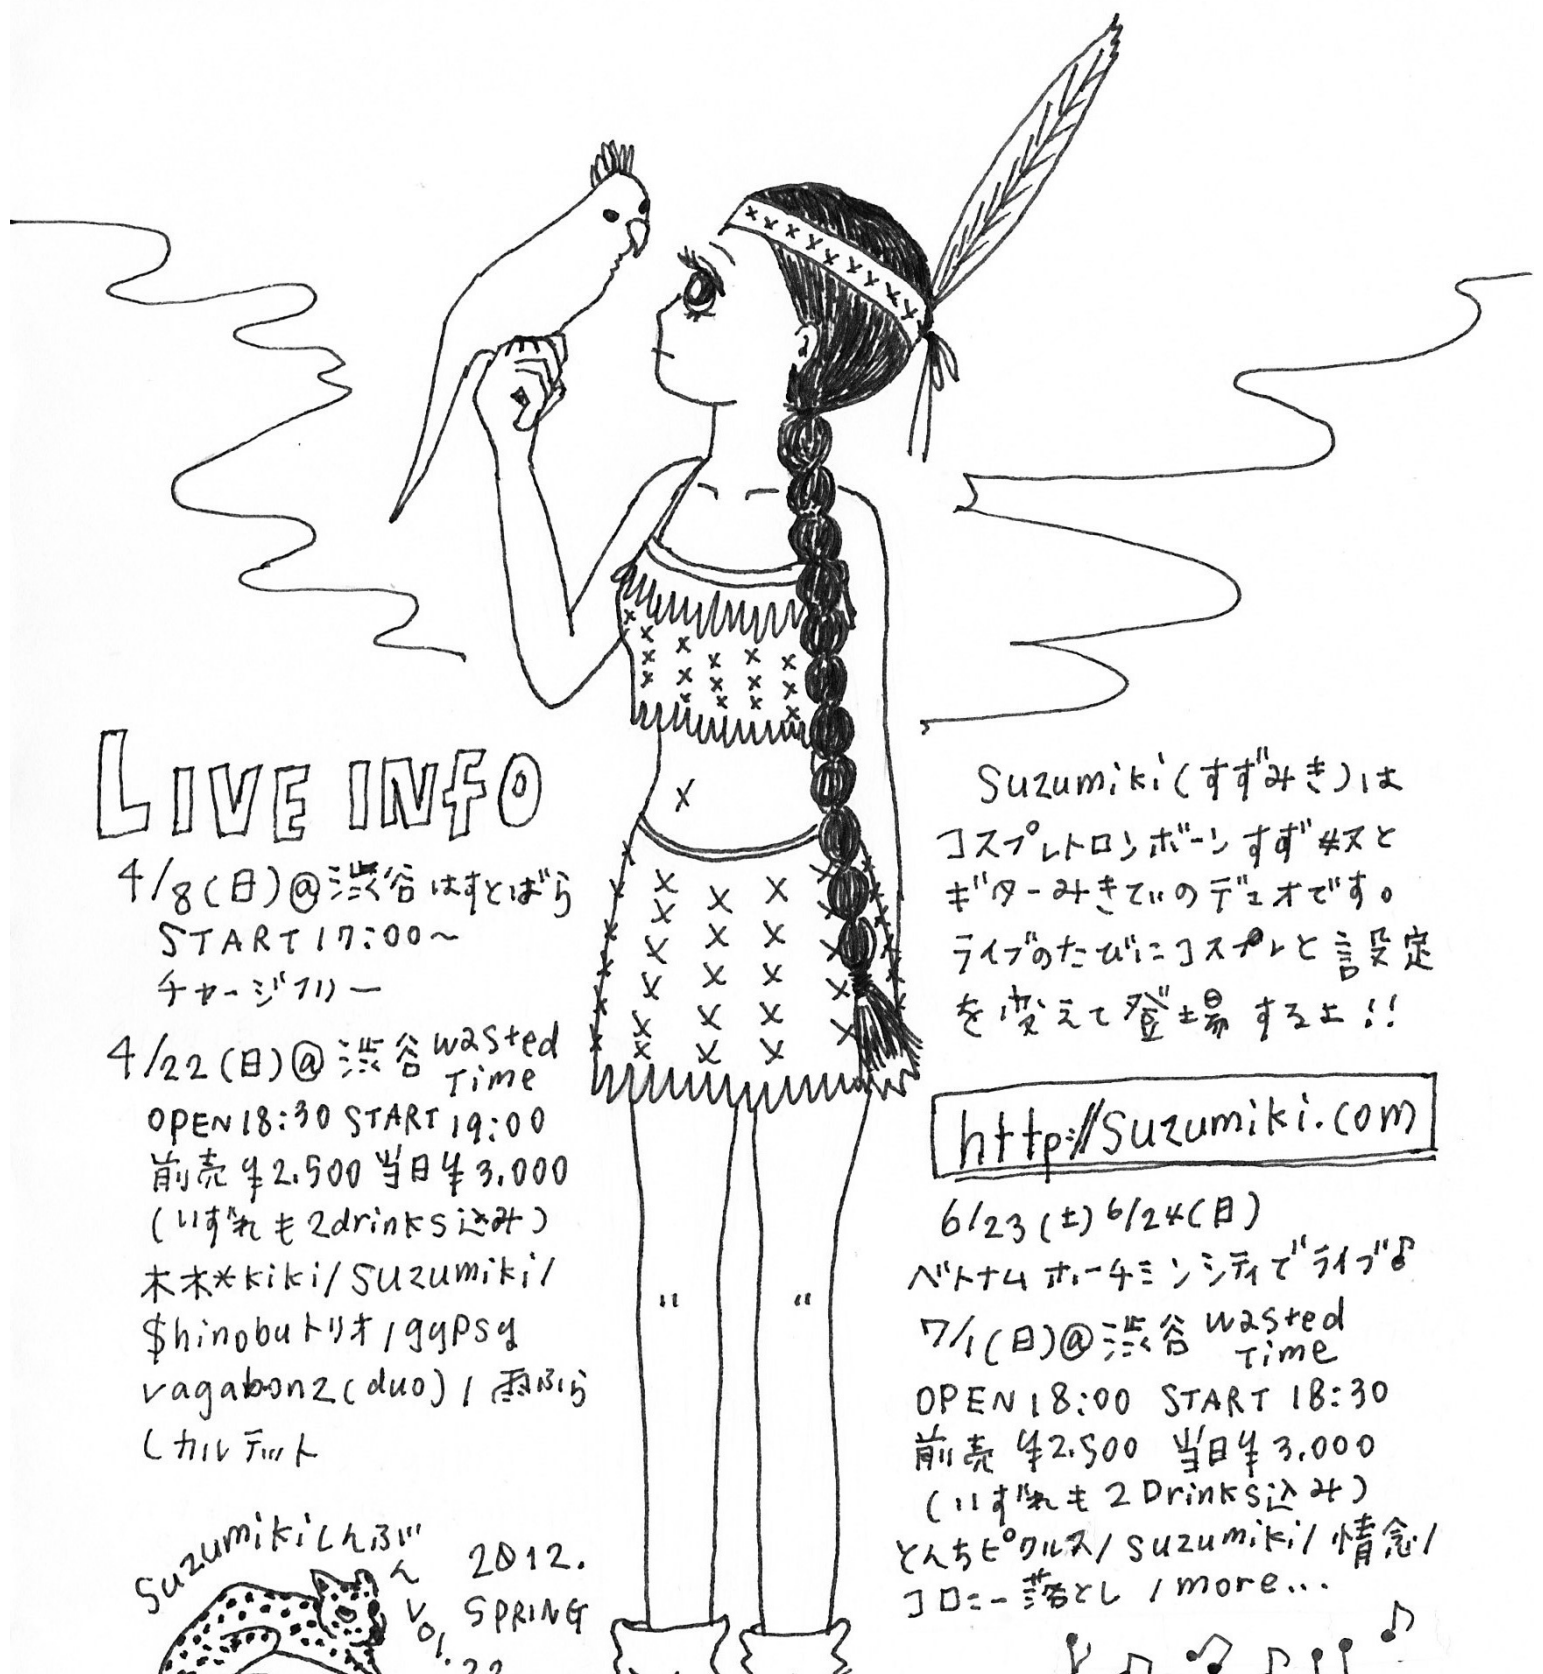 LIVE INFO
4/8(日)@渋谷 はすとばら
START 17:00~
チャージフリー
4/22(日)@渋谷 wasted
Time
OPEN 18:30 START 19:00
前売¥2.500 当日¥3.000
(いずれも2drinks込み)
木木*kiki/SUZUMIKI/
$hinobuトリオ/gypsy
vagabonz(duo)/雨ふら
しカルテット
Suzumikiしんぶん vol.22
2012.
SPRING
Suzumiki(すずみき)は
コスプレトロンボーンすず
ギターみきてぃのデュオです。
ライブのたびにコスプレと設定
を変えて登場するよ!!
http://suzumiki.com
6/23(土)6/24(日)
ベトナムホーチミンシティでライブ♪
7/1(日)@渋谷 wasted
Time
OPEN 18:00 START 18:30
前売 ¥2.500 当日¥3.000
(いずれも2Drinks込み)
とんちピクルス/suzumiki/情念/
コロニー落とし/more...